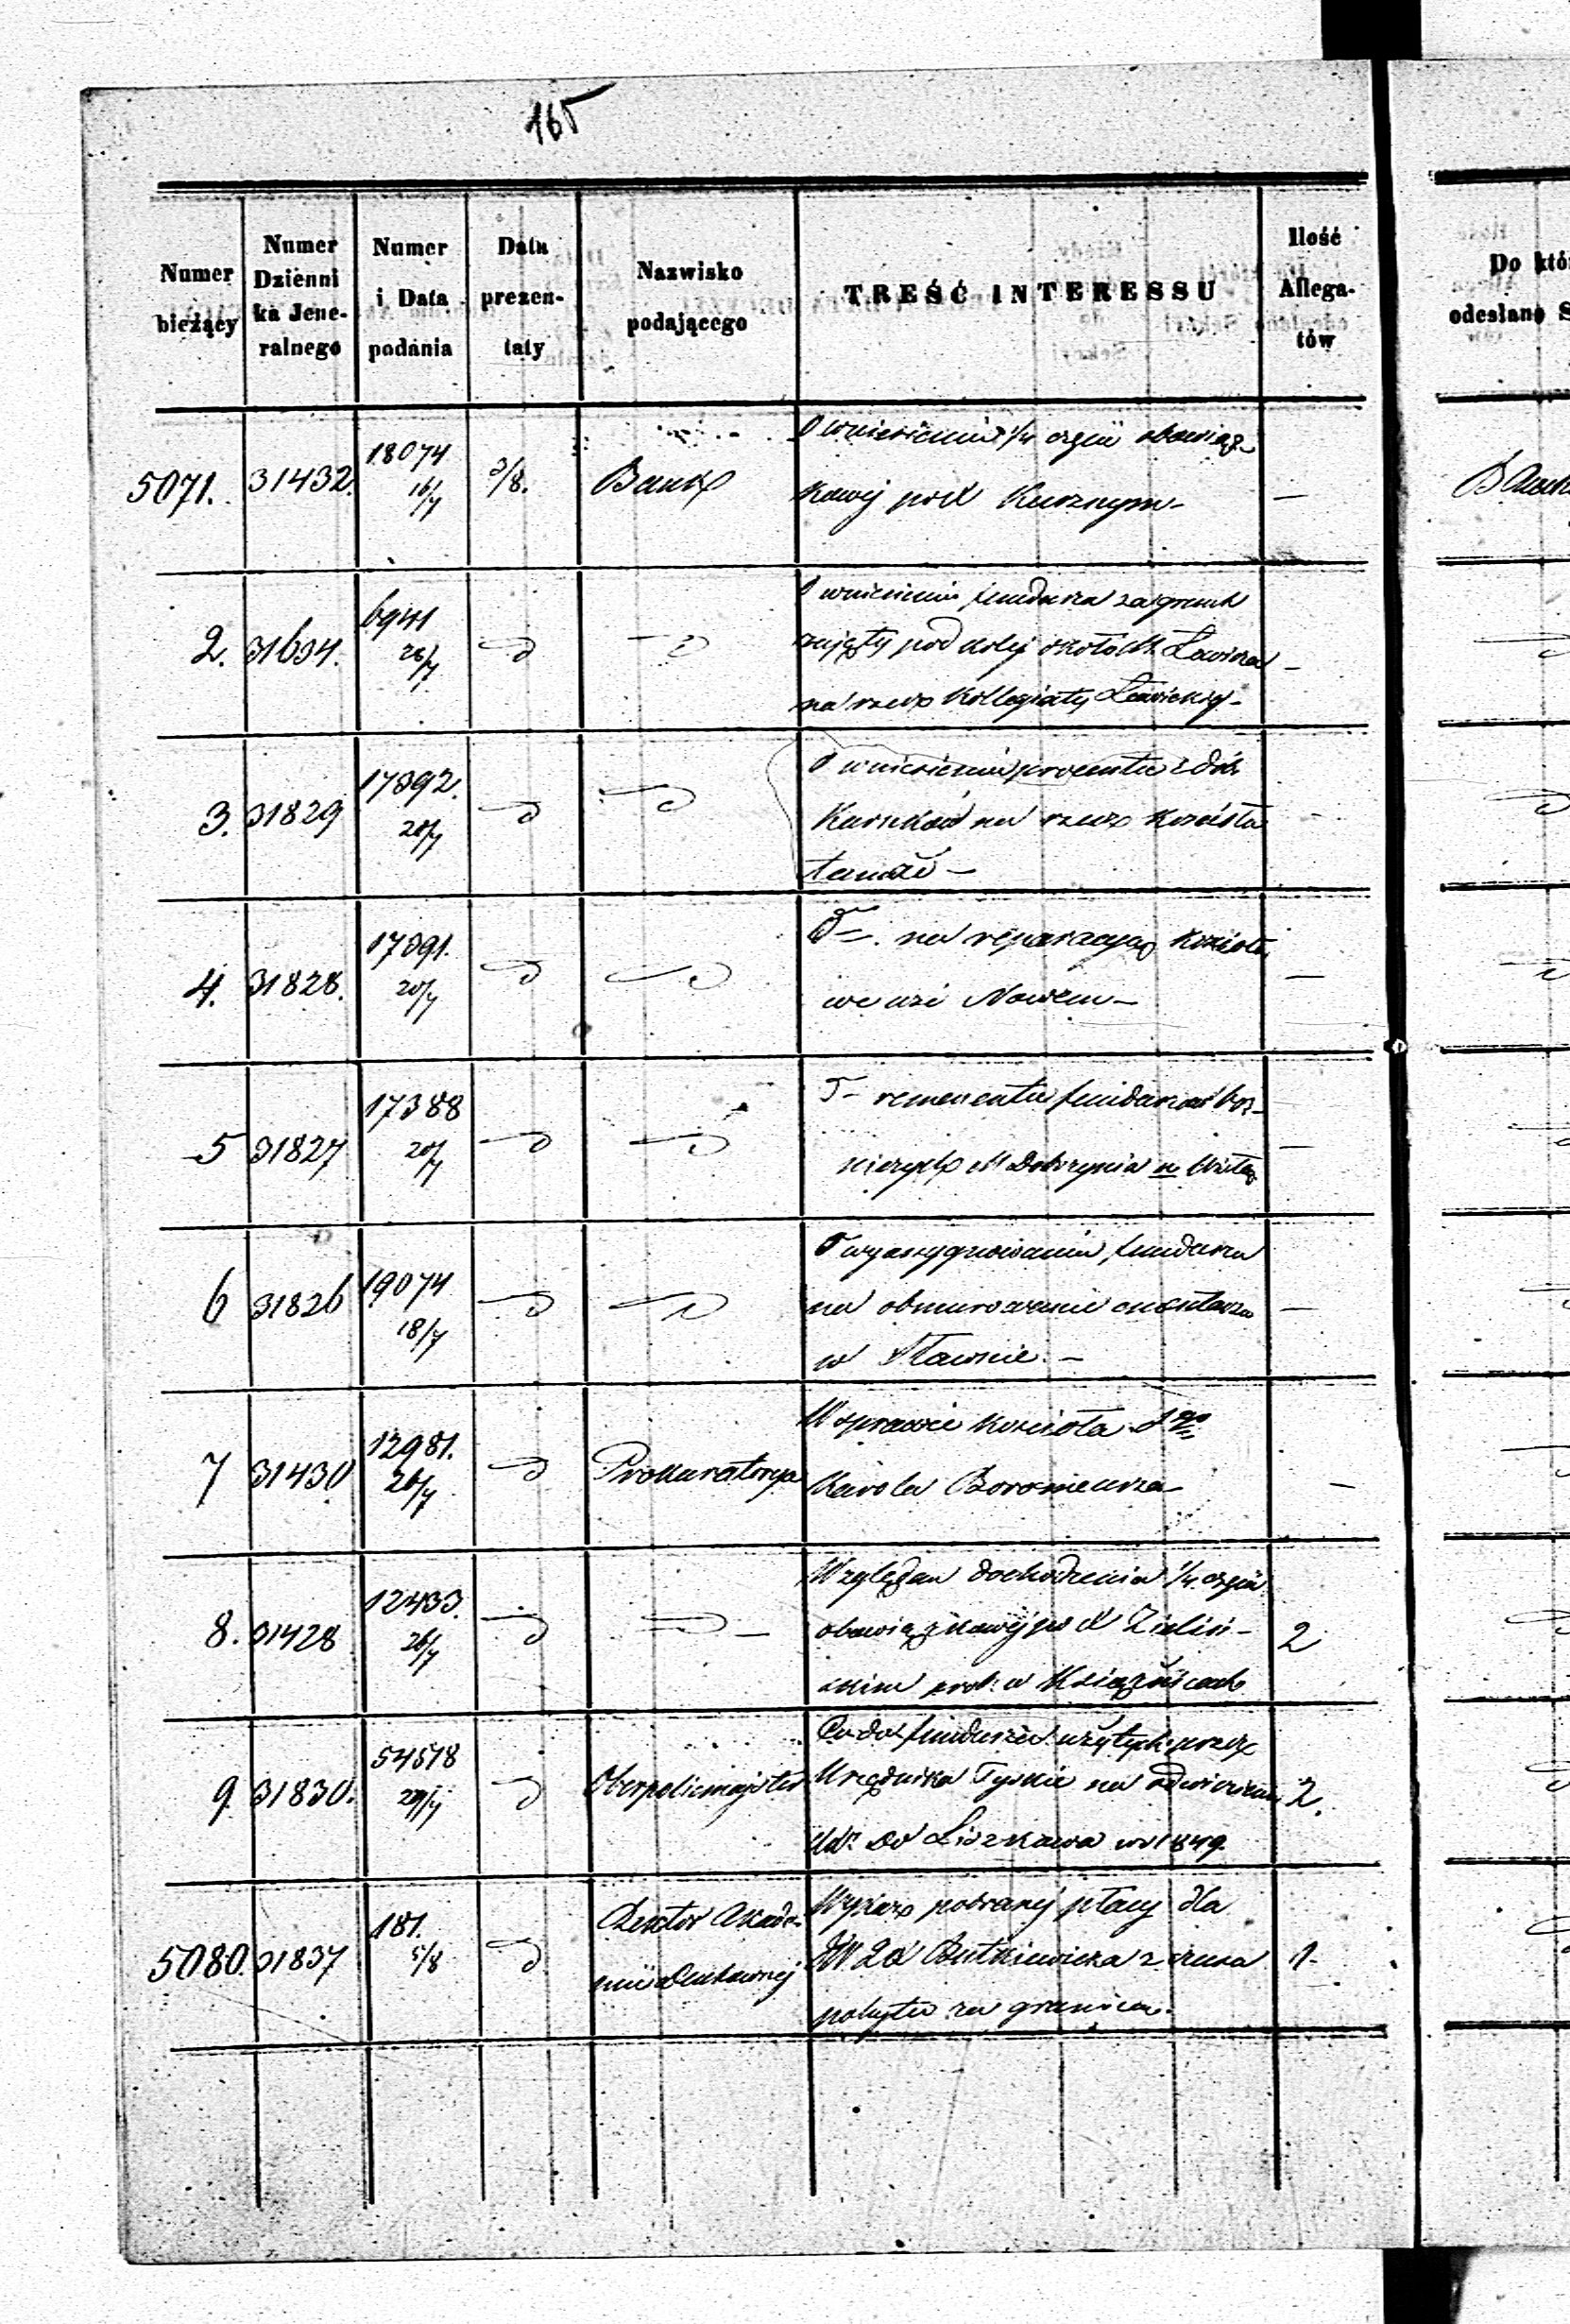 165
Numer bieżący
Numer Dzienni ka Jene- ralnego
Numer i Data podania
Data prezen- taty
Nazwisko podającego
TREŚĆ INTERESSU
Ilość Allega- tów
Do któ
odesłano S
5071. 31432. 18074 16/7 3/8. Bank
O wniesieniu 1/4 części obowiąz-
kowej po X
2. 31634. 6941 26/7
O wniesieniu funduszu za grunt
zajęty pod kolej około M. Łowicza
na rzecz Kollegiaty Łowickiej -
3. 31829 17392. 20/7
O wniesieniu procentu z dóbr
na rzecz Kościoła
tamże -
4. 31828. 17391. 20/7
na reparacyą Kościoła
we wsi Nowem -
5 31827 17388 20/7
remanentu funduszów
M Dobrzynia n Wisłą
6 31826 19074 18/7
O wyasygnowaniu funduszu
na obmurowanie cmentarza
w Sławnie. -
7 31430 12981. 26/7 Prokuratorya
W sprawie Kościoła S go
Karola Boromeusza -
8. 31428 12433. 26/7 2
Względem dochodzenia 1/4 części
obowiązkowej po X Zieliń-
skim prob: w
9. 31830. 54518 29/7 Oberpolicmajster 2.
Co do funduszu użytych przez
Urzędnika na odwiezienie
do Liszkowa w 1849
5080. 31837 181. 5/8 Rektor Akade-
mii Duchownej 1-
Wykaz pobranej płacy dla
Butkiewicza z czasu
pobytu za granicą.